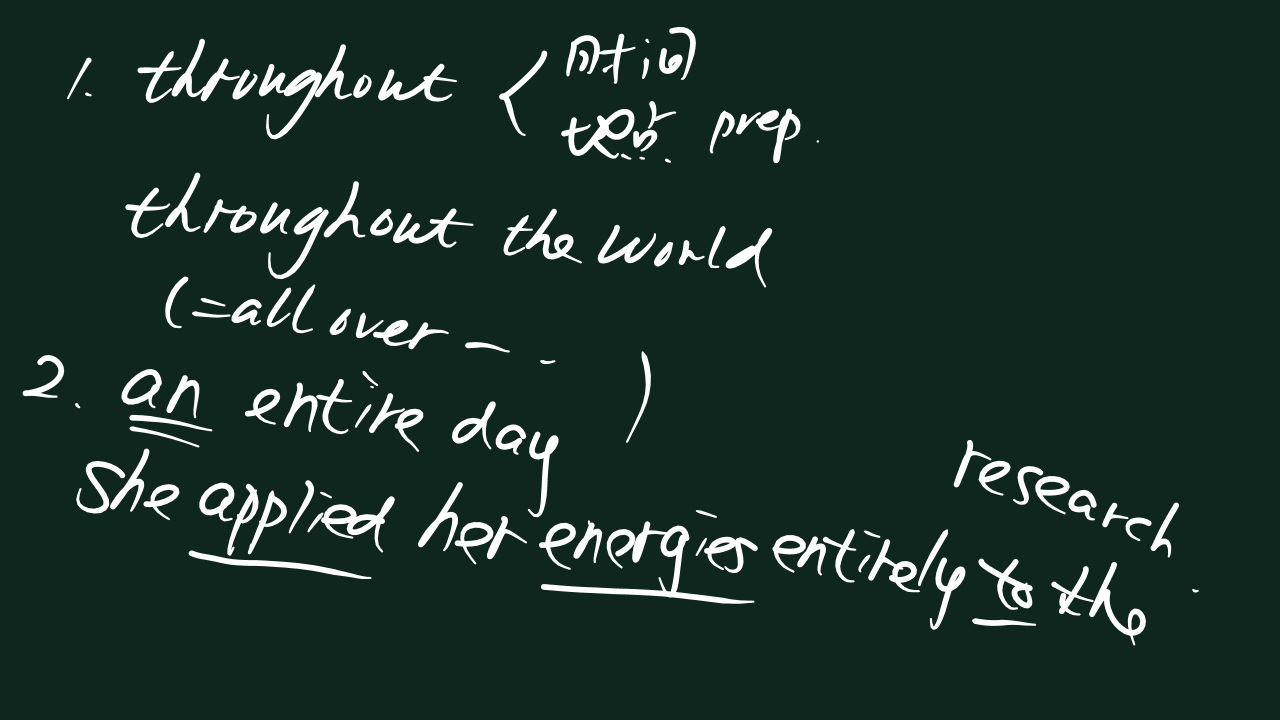 1. throughout < 时间
地点 prep.
throughout the world
(=all over — - )
2. an entire day
She applied her energies entirely to the
research.